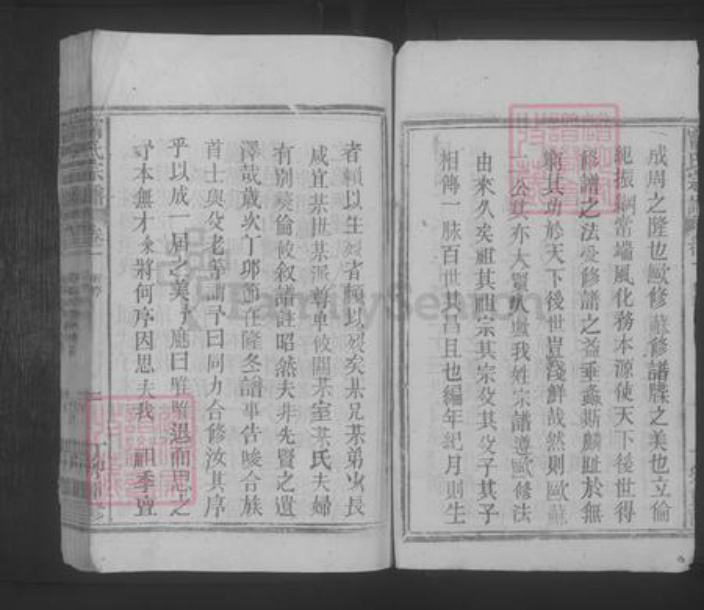 成周之隆也歐修蘇修譜牒之美也立倫
紀振綱常端風化務本源使天下後世得
修譜之法受修譜之益垂螽斯麟趾於無
窮其功於天下後世豈淺鮮哉然則歐蘇
二公其亦大聖人歟我姓宗譜遵歐修法
由來久矣祖其祖宗其宗父其父子其子
相傳一脉百世其昌且也編年紀月則生
者賴以生殁者賴以殁矣某兄某弟少長
咸宜某世某派尊卑攸關某室某氏夫婦
有別彝倫攸叙譜註昭然夫非先賢之遺
澤哉歲次丁卯節在隆冬譜事告竣合族
首士與父老等謂予曰同力合修汝其序
乎以成一届之美予應曰唯唯退而思之
予本無才 將何序因思夫我 祖季寶
FamilySearch